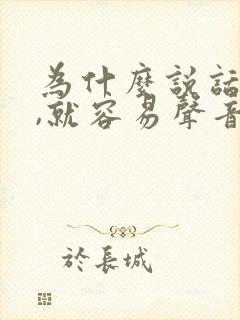 為什麼説話
,就容易聲音
於長城